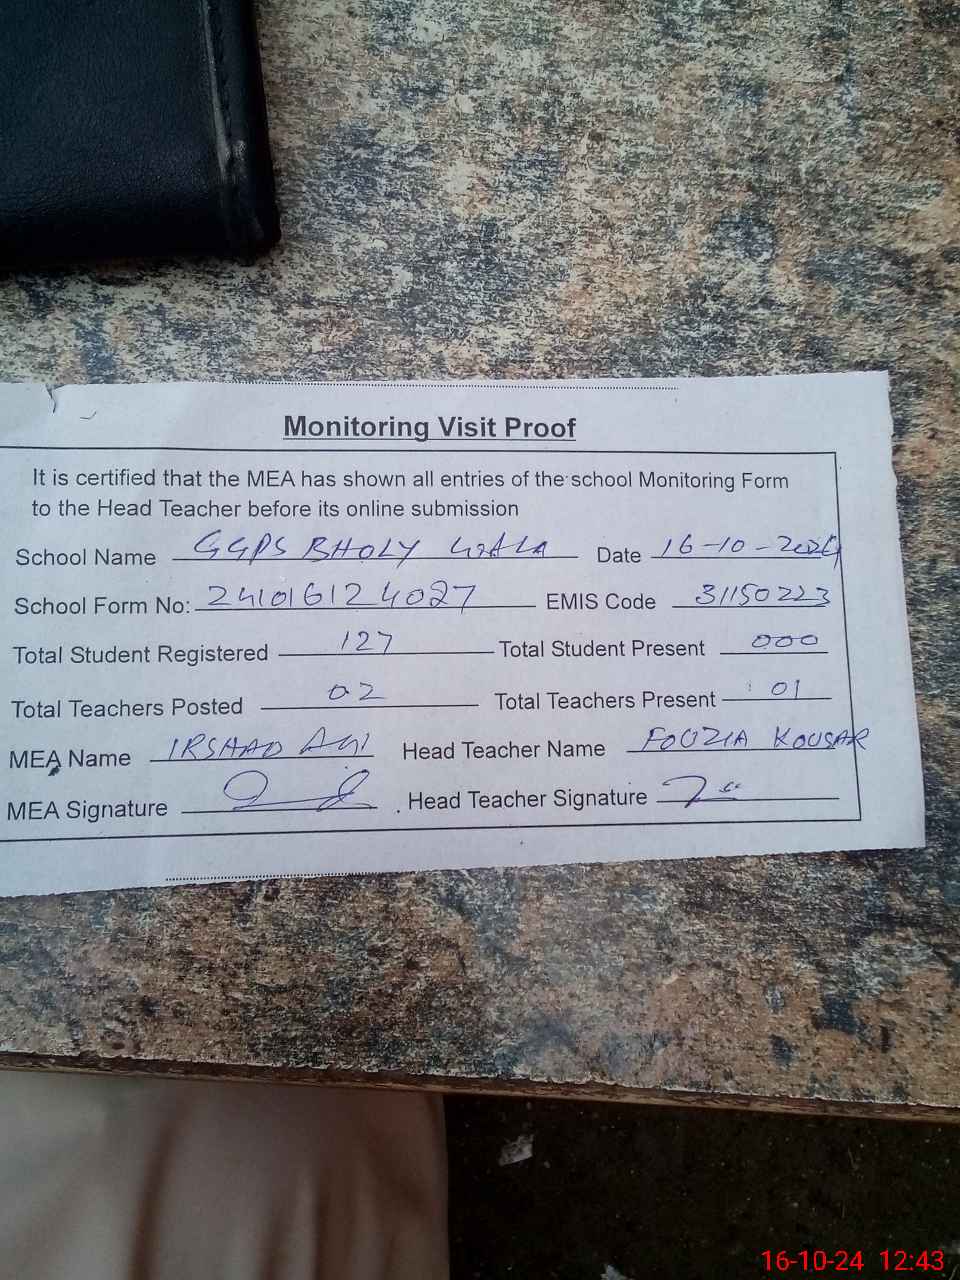 Monitoring Visit Proof
It is certified that the MEA has shown all entries of the school Monitoring Form
to the Head Teacher before its online submission
School Name GGPS BHOLY WALA Date 16-10-2024
School Form No: 241016124027 EMIS Code 31150223
Total Student Registered 127 Total Student Present 000
Total Teachers Posted 02 Total Teachers Present 01
MEA Name IRSHAD ALI Head Teacher Name FOUZIA KOUSAR
MEA Signature Head Teacher Signature
16-10-24 12:43